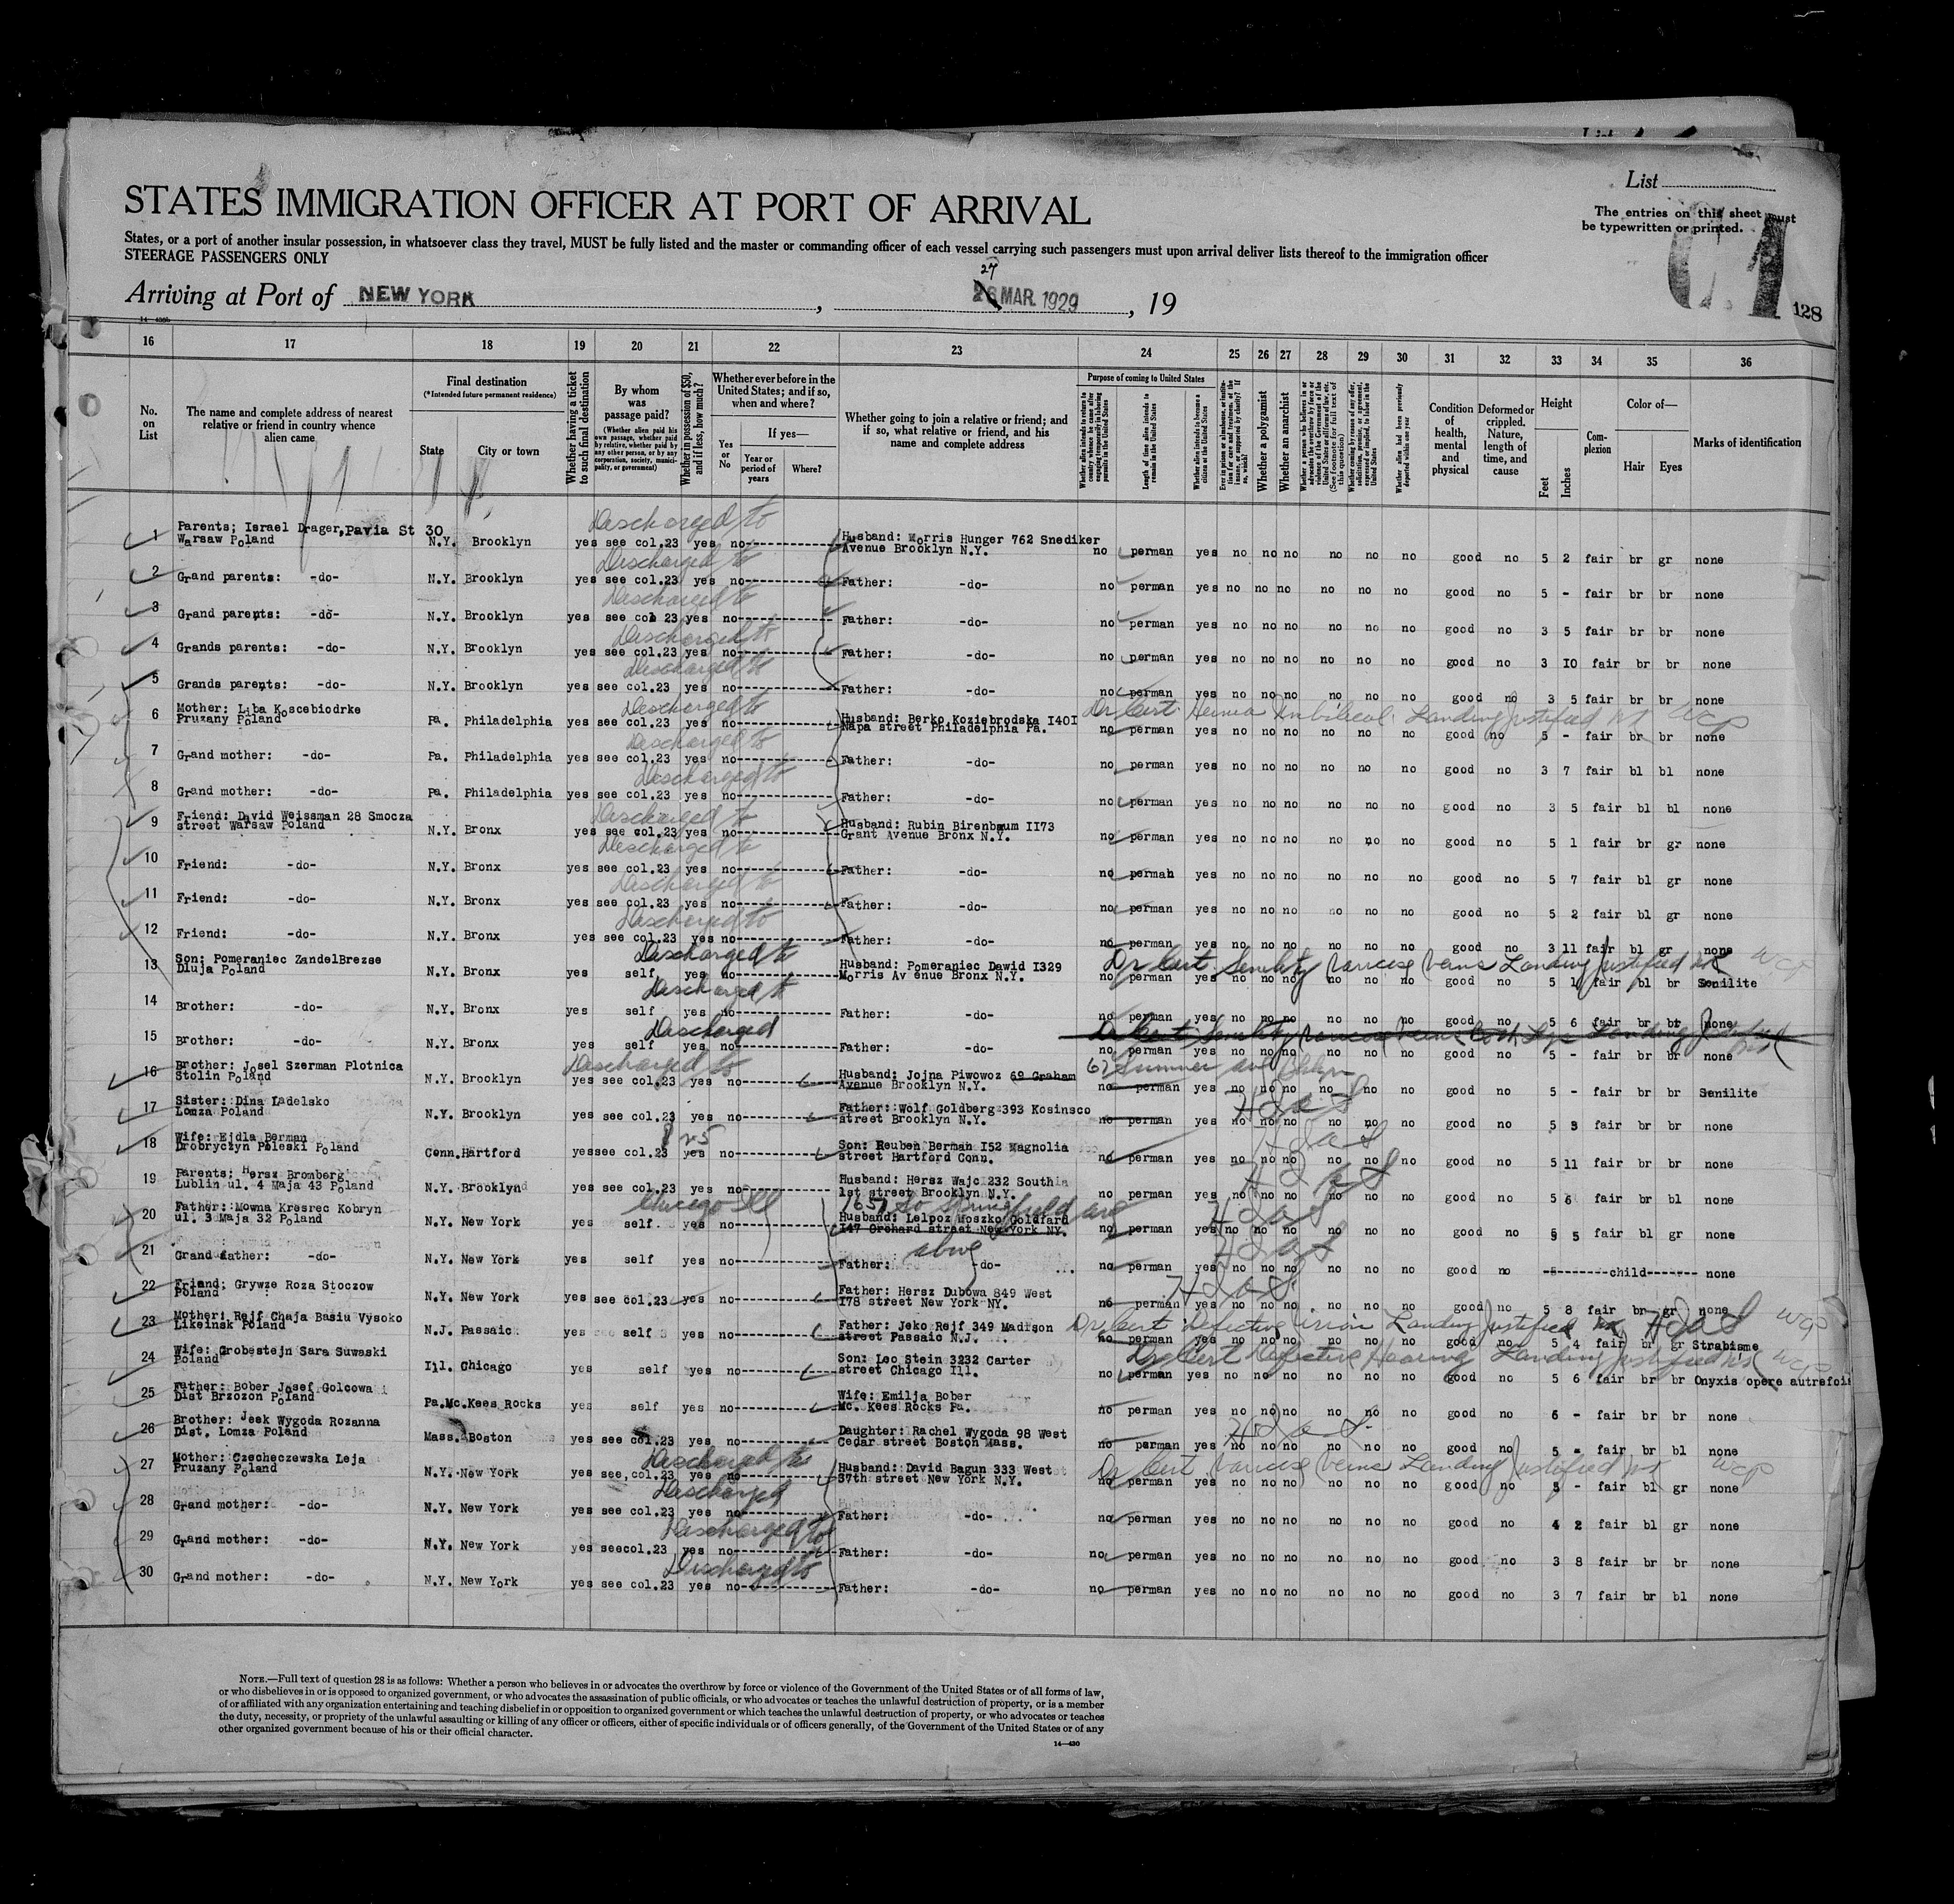 List
STATES IMMIGRATION OFFICER AT PORT OF ARRIVAL
The entries on this sheet must
be typewritten or printed.
States, or a port of another insular possession, in whatsoever class they travel, MUST be fully listed and the master or commanding officer of each vessel carrying such passengers must upon arrival deliver lists thereof to the immigration officer
STEERAGE PASSENGERS ONLY
27
Arriving at Port of NEW YORK, MAR. 1929, 19
128
16 17 18 19 20 21 22 23 24 25 26 27 28 29 30 31 32 33 34 35 36
No. on List
The name and complete address of nearest relative or friend in country whence alien came
Final destination
(*Intended future permanent residence)
State
City or town
Whether having a ticket to such final destination
By whom was passage paid?
(Whether alien paid his own passage, whether paid by relative, whether paid by any other person, or by any corporation, society, municipality, or government)
Whether in possession of $50, and if less, how much?
Whether ever before in the United States; and if so, when and where?
Yes or No
If yes—
Year or period of years
Where?
Whether going to join a relative or friend; and if so, what relative or friend, and his name and complete address
Purpose of coming to United States
Length of time alien intends to remain in the United States
Whether alien intends to become a citizen of the United States
Whether a polygamist
Whether an anarchist
Condition of health, mental and physical
Deformed or crippled. Nature, length of time, and cause
Height
Feet
Inches
Complexion
Color of—
Hair
Eyes
Marks of identification
Discharged to
1 Parents; Israel Drager,Pavia St 30 Warsaw Poland N.Y. Brooklyn yes see col.23 yes no Husband: Morris Hunger 762 Snediker Avenue Brooklyn N.Y. no perman yes no no no no no no good no 5 2 fair br gr none
Discharged to
2 Grand parents: -do- N.Y. Brooklyn yes see col.23 yes no Father: -do- no perman yes no no no no no no good no 5 - fair br br none
Discharged to
3 Grand parents: -do- N.Y. Brooklyn yes see col 23 yes no Father: -do- no perman yes no no no no no no good no 3 5 fair br br none
Discharged to
4 Grands parents: -do- N.Y. Brooklyn yes see col.23 yes no Father: -do- no perman yes no no no no no no good no 3 10 fair br br none
Discharged to
5 Grands parents: -do- N.Y. Brooklyn yes see col.23 yes no Father: -do- no perman yes no no no no no no good no 3 5 fair br br none
Discharged to Dr Cert. Hernia Umbilical Landing justified WCP
6 Mother: Liba Koscebiodrke Pruzany Poland Pa. Philadelphia yes see col.23 yes no Husband: Berko Koziebrodska I40I Napa street Philadelphia Pa. no perman yes no no no no no no good no 5 - fair br br none
Discharged to
7 Grand mother: -do- Pa. Philadelphia yes see col.23 yes no Father: -do- no perman yes no no no no no no good no 3 7 fair bl bl none
Discharged to
8 Grand mother: -do- Pa. Philadelphia yes see col.23 yes no Father: -do- no perman yes no no no no no no good no 3 5 fair bl bl none
Discharged to
9 Friend: David Weissman 28 Smocza street Warsaw Poland N.Y. Bronx yes see col.23 yes no Husband: Rubin Birenbaum II73 Grant Avenue Bronx N.Y. no perman yes no no no no no no good no 5 1 fair br gr none
Discharged to
10 Friend: -do- N.Y. Bronx yes see col.23 yes no Father: -do- no perman yes no no no no no no good no 5 7 fair bl gr none
Discharged to
11 Friend: -do- N.Y. Bronx yes see col.23 yes no Father: -do- no perman yes no no no no no no good no 5 2 fair bl gr none
Discharged to
12 Friend: -do- N.Y. Bronx yes see col.23 yes no Father: -do- no perman yes no no no no no no good no 3 11 fair bl gr none
Discharged to Dr Cert. Senility Varicose Veins Landing justified WCP
13 Son: Pomeraniec ZandelBrezse Dluja Poland N.Y. Bronx yes self yes no Husband: Pomeraniec Dawid I329 Morris Av enue Bronx N.Y. no perman yes no no no no no no good no 5 1 fair bl br Senilite
Discharged to
14 Brother: -do- N.Y. Bronx yes self yes no Father: -do- no perman yes no no no no no no good no 5 6 fair br br none
Discharged Dr Cert Senility Varicose Veins both legs Landing justified
15 Brother: -do- N.Y. Bronx yes self yes no Father: -do- no perman yes no no no no no no good no 5 - fair br br none
Discharged to 67 Sumner ave Bklyn
16 Brother: Josel Szerman Plotnica Stolin Poland N.Y. Brooklyn yes see col.23 yes no Husband: Jojna Piwowoz 69 Graham Avenue Brooklyn N.Y. no perman yes no no no no no no good no 5 - fair br br Senilite
Hias
17 Sister: Dina Ladelsko Lomza Poland N.Y. Brooklyn yes see col.23 yes no Father: Wolf Goldberg 393 Kosinsco street Brooklyn N.Y. no perman yes no no no no no no good no 5 3 fair br br none
Hias
18 Wife: Ejdla Berman Drobryczyn Poleski Poland Conn.Hartford yes see col.23 yes no Son: Reuben Berman I52 Magnolia street Hartford Conn. no perman yes no no no no no no good no 5 11 fair br br none
Hias
19 Parents: Hersz Bromberg Lublin ul. 4 Maja 43 Poland N.Y. Brooklyn yes see col.23 yes no Husband: Hersz Wajc 232 South 1st street Brooklyn N.Y. no perman yes no no no no no no good no 5 6 fair br bl none
Chicago Ill 1651 So Springfield ave Hias
20 Father: Mowna Kresrec Kobryn ul. 3 Maja 32 Poland N.Y. New York yes self yes no Husband: Lelpoz Moszko Goldfard I47 Orchard street New York NY. no perman yes no no no no no no good no 5 5 fair bl gr none
above Hias
21 Grand father: -do- N.Y. New York yes self yes no Father: -do- no perman yes no no no no no no good no child none
Hias
22 Friend; Grywze Roza Stoczow Poland N.Y. New York yes see col.23 yes no Father: Hersz Dubowa 849 West I78 street New York NY. no perman yes no no no no no no good no 5 8 fair br gr none
Dr Cert Defective vision Landing justified Hias WCP
23 Mother: Rejf Chaja Basiu Vysoko Likeinsk Poland N.J. Passaic yes self yes no Father: Jeko Rejf 349 Madison street Passaic N.J. no perman yes no no no no no no good no 5 4 fair br gr Strabisme
Dr Cert Defective Hearing Landing justified WCP
24 Wife: Grobestejn Sara Suwaski Poland Ill. Chicago yes self yes no Son: Leo Stein 3232 Carter street Chicago Ill. no perman yes no no no no no no good no 5 6 fair br br Onyxis opere autrefois
25 Father: Bober Josef Golcowa Dist Brzozon Poland Pa.Mc.Kees Rocks yes self yes no Wife: Emilja Bober Mc. Kees Rocks Pa. no perman yes no no no no no no good no 6 - fair br br none
Hias
26 Brother: Jesk Wygoda Rozanna Dist. Lomza Poland Mass. Boston yes see col.23 yes no Daughter: Rachel Wygoda 98 West Cedar street Boston Mass. no perman yes no no no no no no good no 5 - fair br bl none
Discharged to Dr Cert Varicose Veins Landing justified WCP
27 Mother: Czecheczewska Leja Pruzany Poland N.Y. New York yes see col.23 yes no Husband: David Bagun 333 West 37th street New York N.Y. no perman yes no no no no no no good no 5 - fair bl gr none
Discharged
28 Grand mother: -do- N.Y. New York yes see col.23 yes no Father: -do- no perman yes no no no no no no good no 4 2 fair bl gr none
Discharged to
29 Grand mother: -do- N.Y. New York yes seecol.23 yes no Father: -do- no perman yes no no no no no no good no 3 8 fair br br none
Discharged to
30 Grand mother: -do- N.Y. New York yes see col.23 yes no Father: -do- no perman yes no no no no no no good no 3 7 fair br bl none
NOTE.—Full text of question 28 is as follows: Whether a person who believes in or advocates the overthrow by force or violence of the Government of the United States or of all forms of law,
or who disbelieves in or is opposed to organized government, or who advocates the assassination of public officials, or who advocates or teaches the unlawful destruction of property, or is a member
of or affiliated with any organization entertaining and teaching disbelief in or opposition to organized government or which teaches the unlawful destruction of property, or who advocates or teaches
the duty, necessity, or propriety of the unlawful assaulting or killing of any officer or officers, either of specific individuals or of officers generally, of the Government of the United States or of any
other organized government because of his or their official character.
14—430